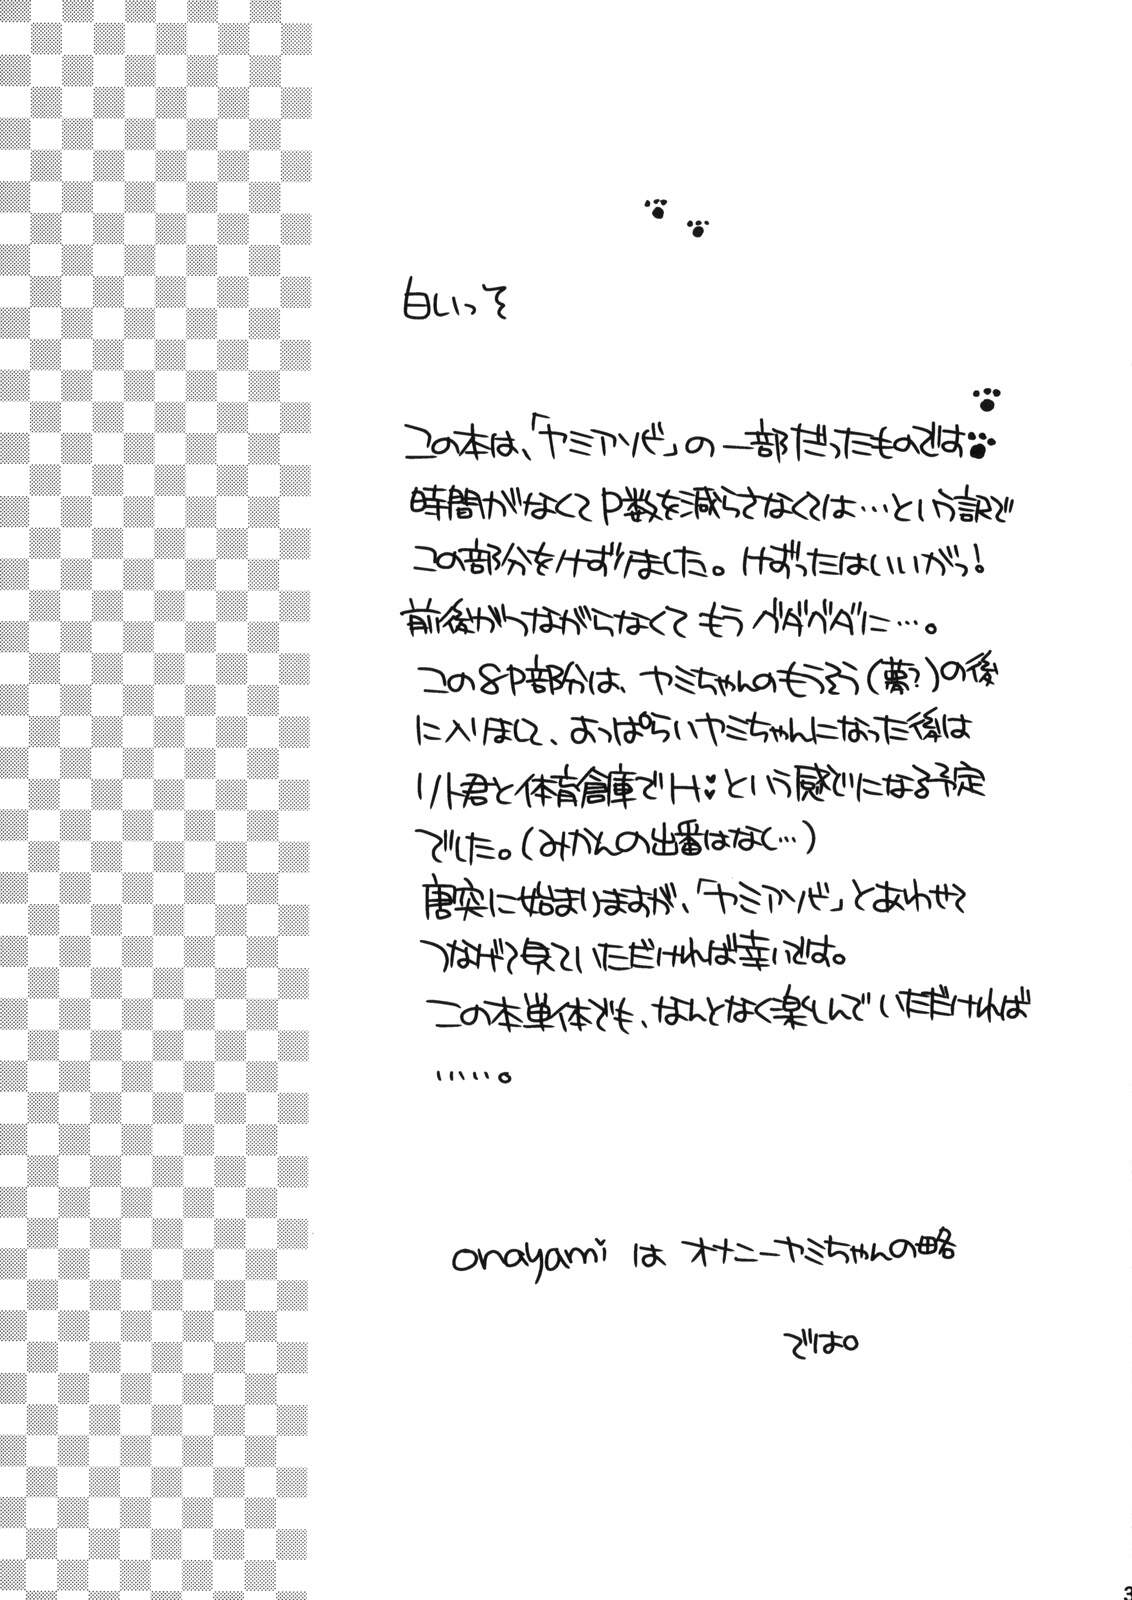 白いっそ
この本は、「ヤミアソビ」の一部だったものです
時間がなくてP数を減らさなくては…という訳で
この部分をけずりました。けずったはいいがっ!
前後がつながらなくてもうグダグダに…。
この8P部分は、ヤミちゃんのもうそう(夢?)の後
に入りまして、よっぱらいヤミちゃんになった後は
リト君と体育倉庫でH♥という感じになる予定
でした。(みかんの出番はなし…)
唐突に始まりますが、「ヤミアソビ」とあわせて
つなげて見ていただければ幸いです。
この本単体でも、なんとなく楽しんでいただければ
……。
onayami は オナニーヤミちゃんの略
では。
3